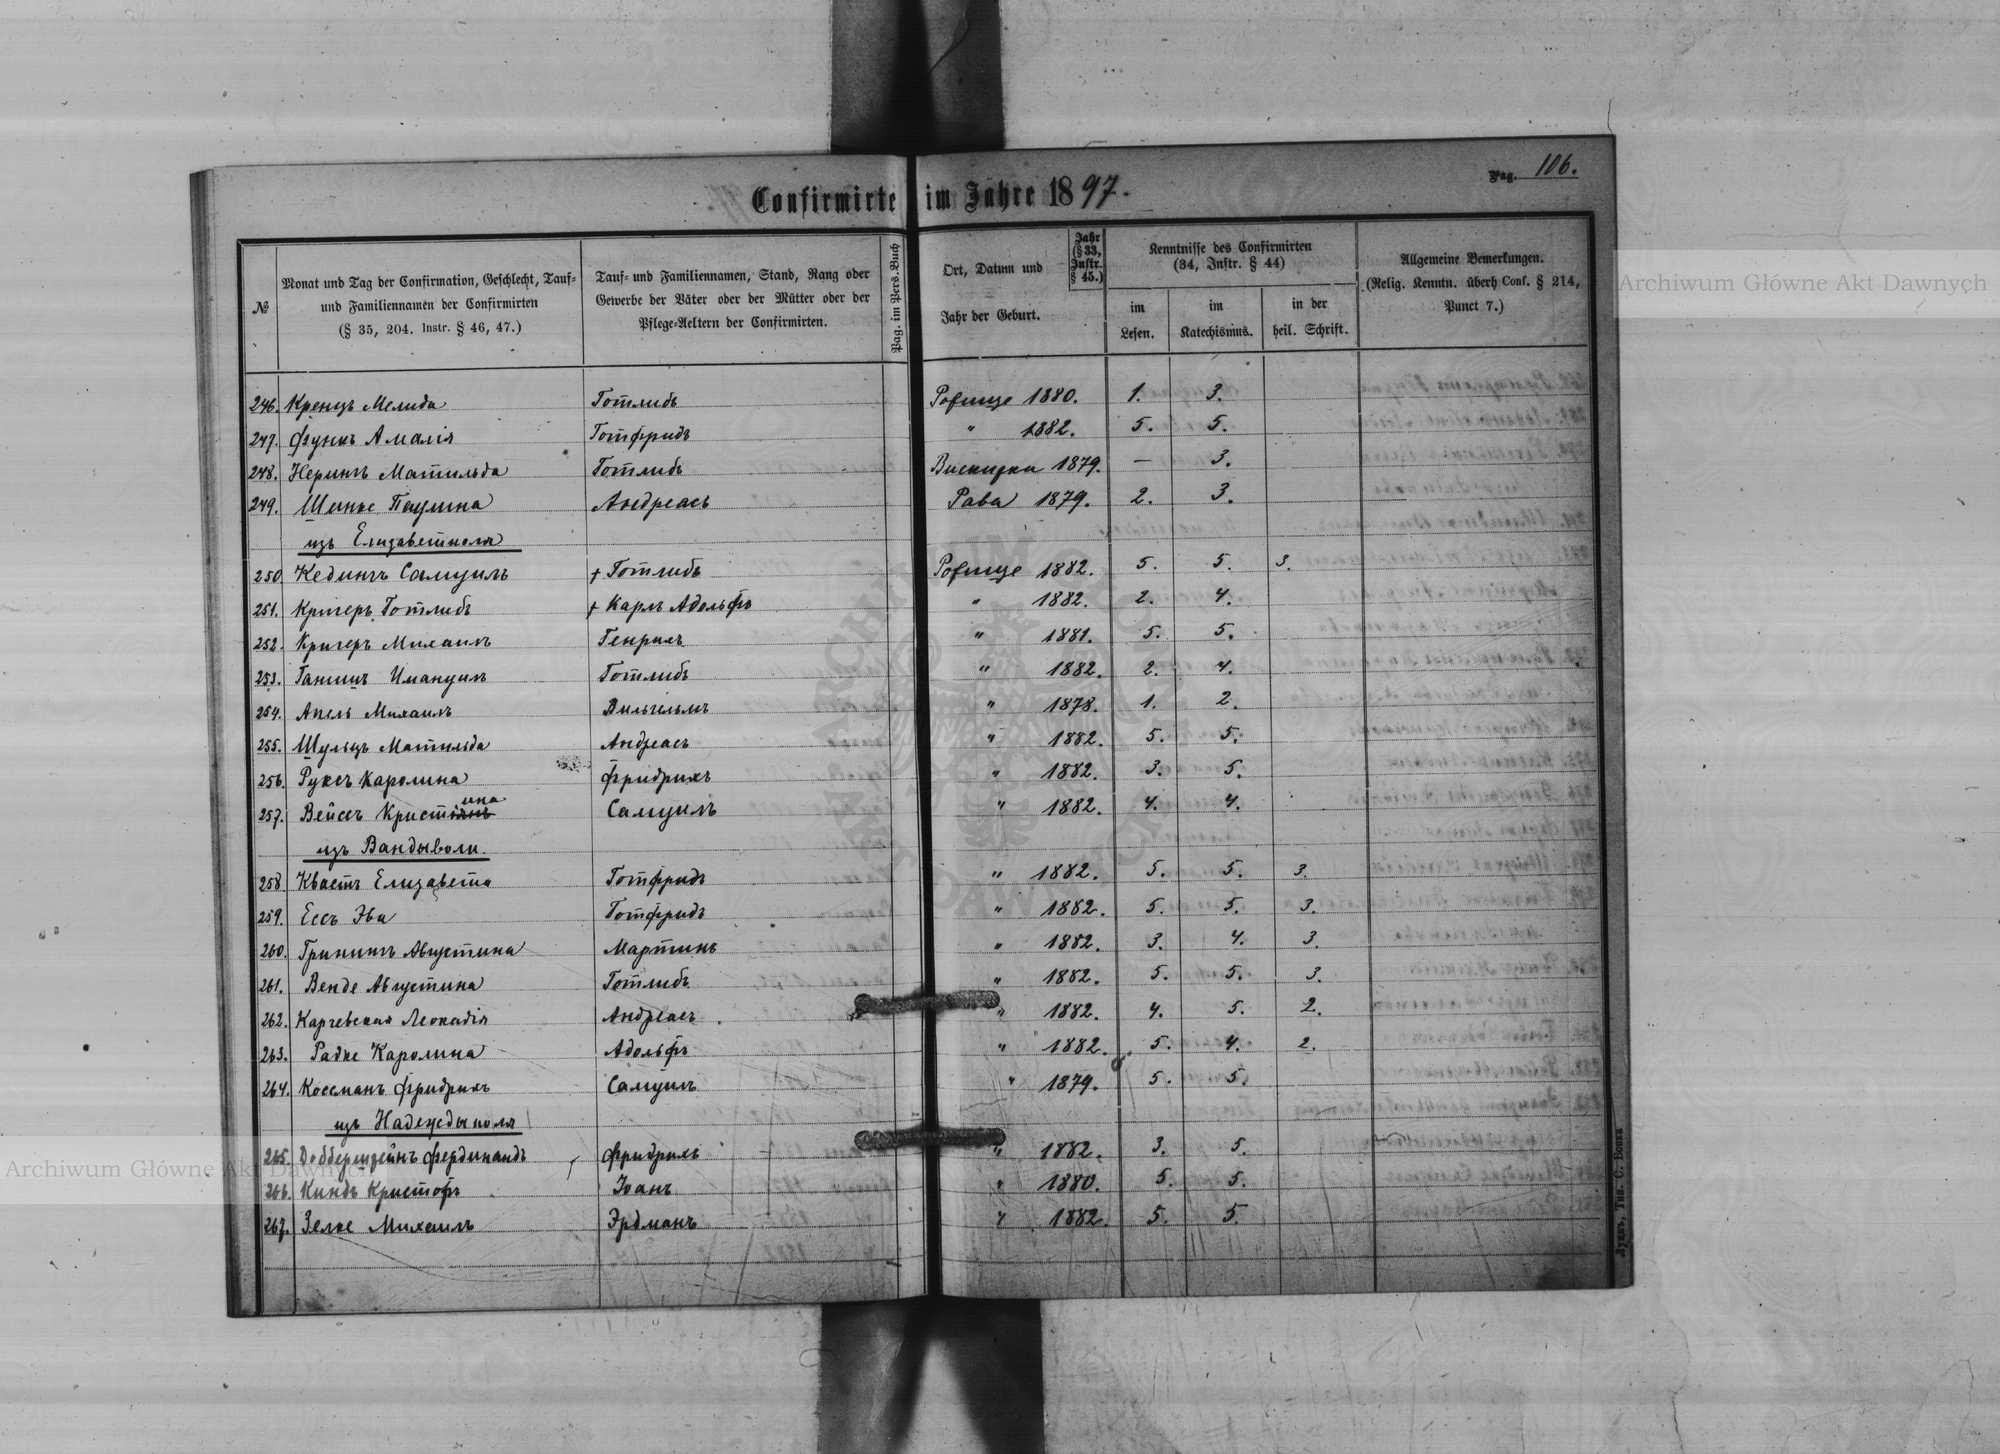 Pag. 106.
Confirmirte im Jahre 1897.
№
Monat und Tag der Confirmation, Geschlecht, Tauf-
und Familiennamen der Confirmirten
(§ 35, 204. Instr. § 46, 47.)
Tauf- und Familiennamen, Stand, Rang oder
Gewerbe der Väter oder der Mütter oder der
Pflege-Aeltern der Confirmirten.
Pag. im Pers.-Buch
Ort, Datum und
Jahr der Geburt.
Jahr
(§ 33,
Instr.
§ 45.)
Kenntnisse des Confirmirten
(34, Instr. § 44)
im
Lesen.
im
Katechismus.
in der
heil. Schrift.
Allgemeine Bemerkungen.
(Relig. Kenntn. überh. Conf. § 214,
Punct 7.)
246. Кренцъ Мелида Готлибъ Рожище 1880. 1. 3.
247. Функъ Амалія Готфридъ " 1882. 5. 5.
248. Нерингъ Матильда Готлибъ 1879. — 3.
249. Шенке Паулина Андреасъ Рава 1879. 2. 3.
изъ Елизаветполя
250. Кедингъ Самуилъ + Готлибъ Рожище 1882. 5. 5. 3.
251. Кригеръ Готлибъ + Карлъ Адольфъ " 1882. 2. 4.
252. Кригеръ Михаилъ Генрихъ " 1881. 5. 5.
253. Ганшъ Имануилъ Готлибъ " 1882. 2. 4.
254. Апель Михаилъ Вильгельмъ " 1878. 1. 2.
255. Шульцъ Матильда Андреасъ " 1882. 5. 5.
256. Руксъ Каролина Фридрихъ " 1882. 3. 5.
257. Вейсъ Кристина Самуилъ " 1882. 4. 4.
изъ Вандыволи.
258. Квастъ Елизавета Готфридъ " 1882. 5. 5. 3.
259. Ессъ Эва Готфридъ " 1882. 5. 5. 3.
260. Грининъ Августина Мартинъ " 1882. 3. 4. 3.
261. Венде Августина Готлибъ " 1882. 5. 5. 3.
262. Карчевская Леокадія Андреасъ " 1882. 4. 5. 2.
263. Радке Каролина Адольфъ " 1882. 5. 4. 2.
264. Коссманъ Фридрихъ Самуилъ " 1879. 5. 5.
изъ Надеждыполя
265. Добберштейнъ Фердинандъ Фридрихъ " 1882. 3. 5.
266. Киндъ Кристофъ Іоанъ " 1880. 5. 5.
267. Зелке Михаилъ Эрдманъ " 1882. 5. 5.
Луцкъ, Тип. С. Бонка
Archiwum Główne Akt Dawnych
Archiwum Główne Akt Dawnych
ARCHIWUM GŁÓWNE AKT DAWNYCH